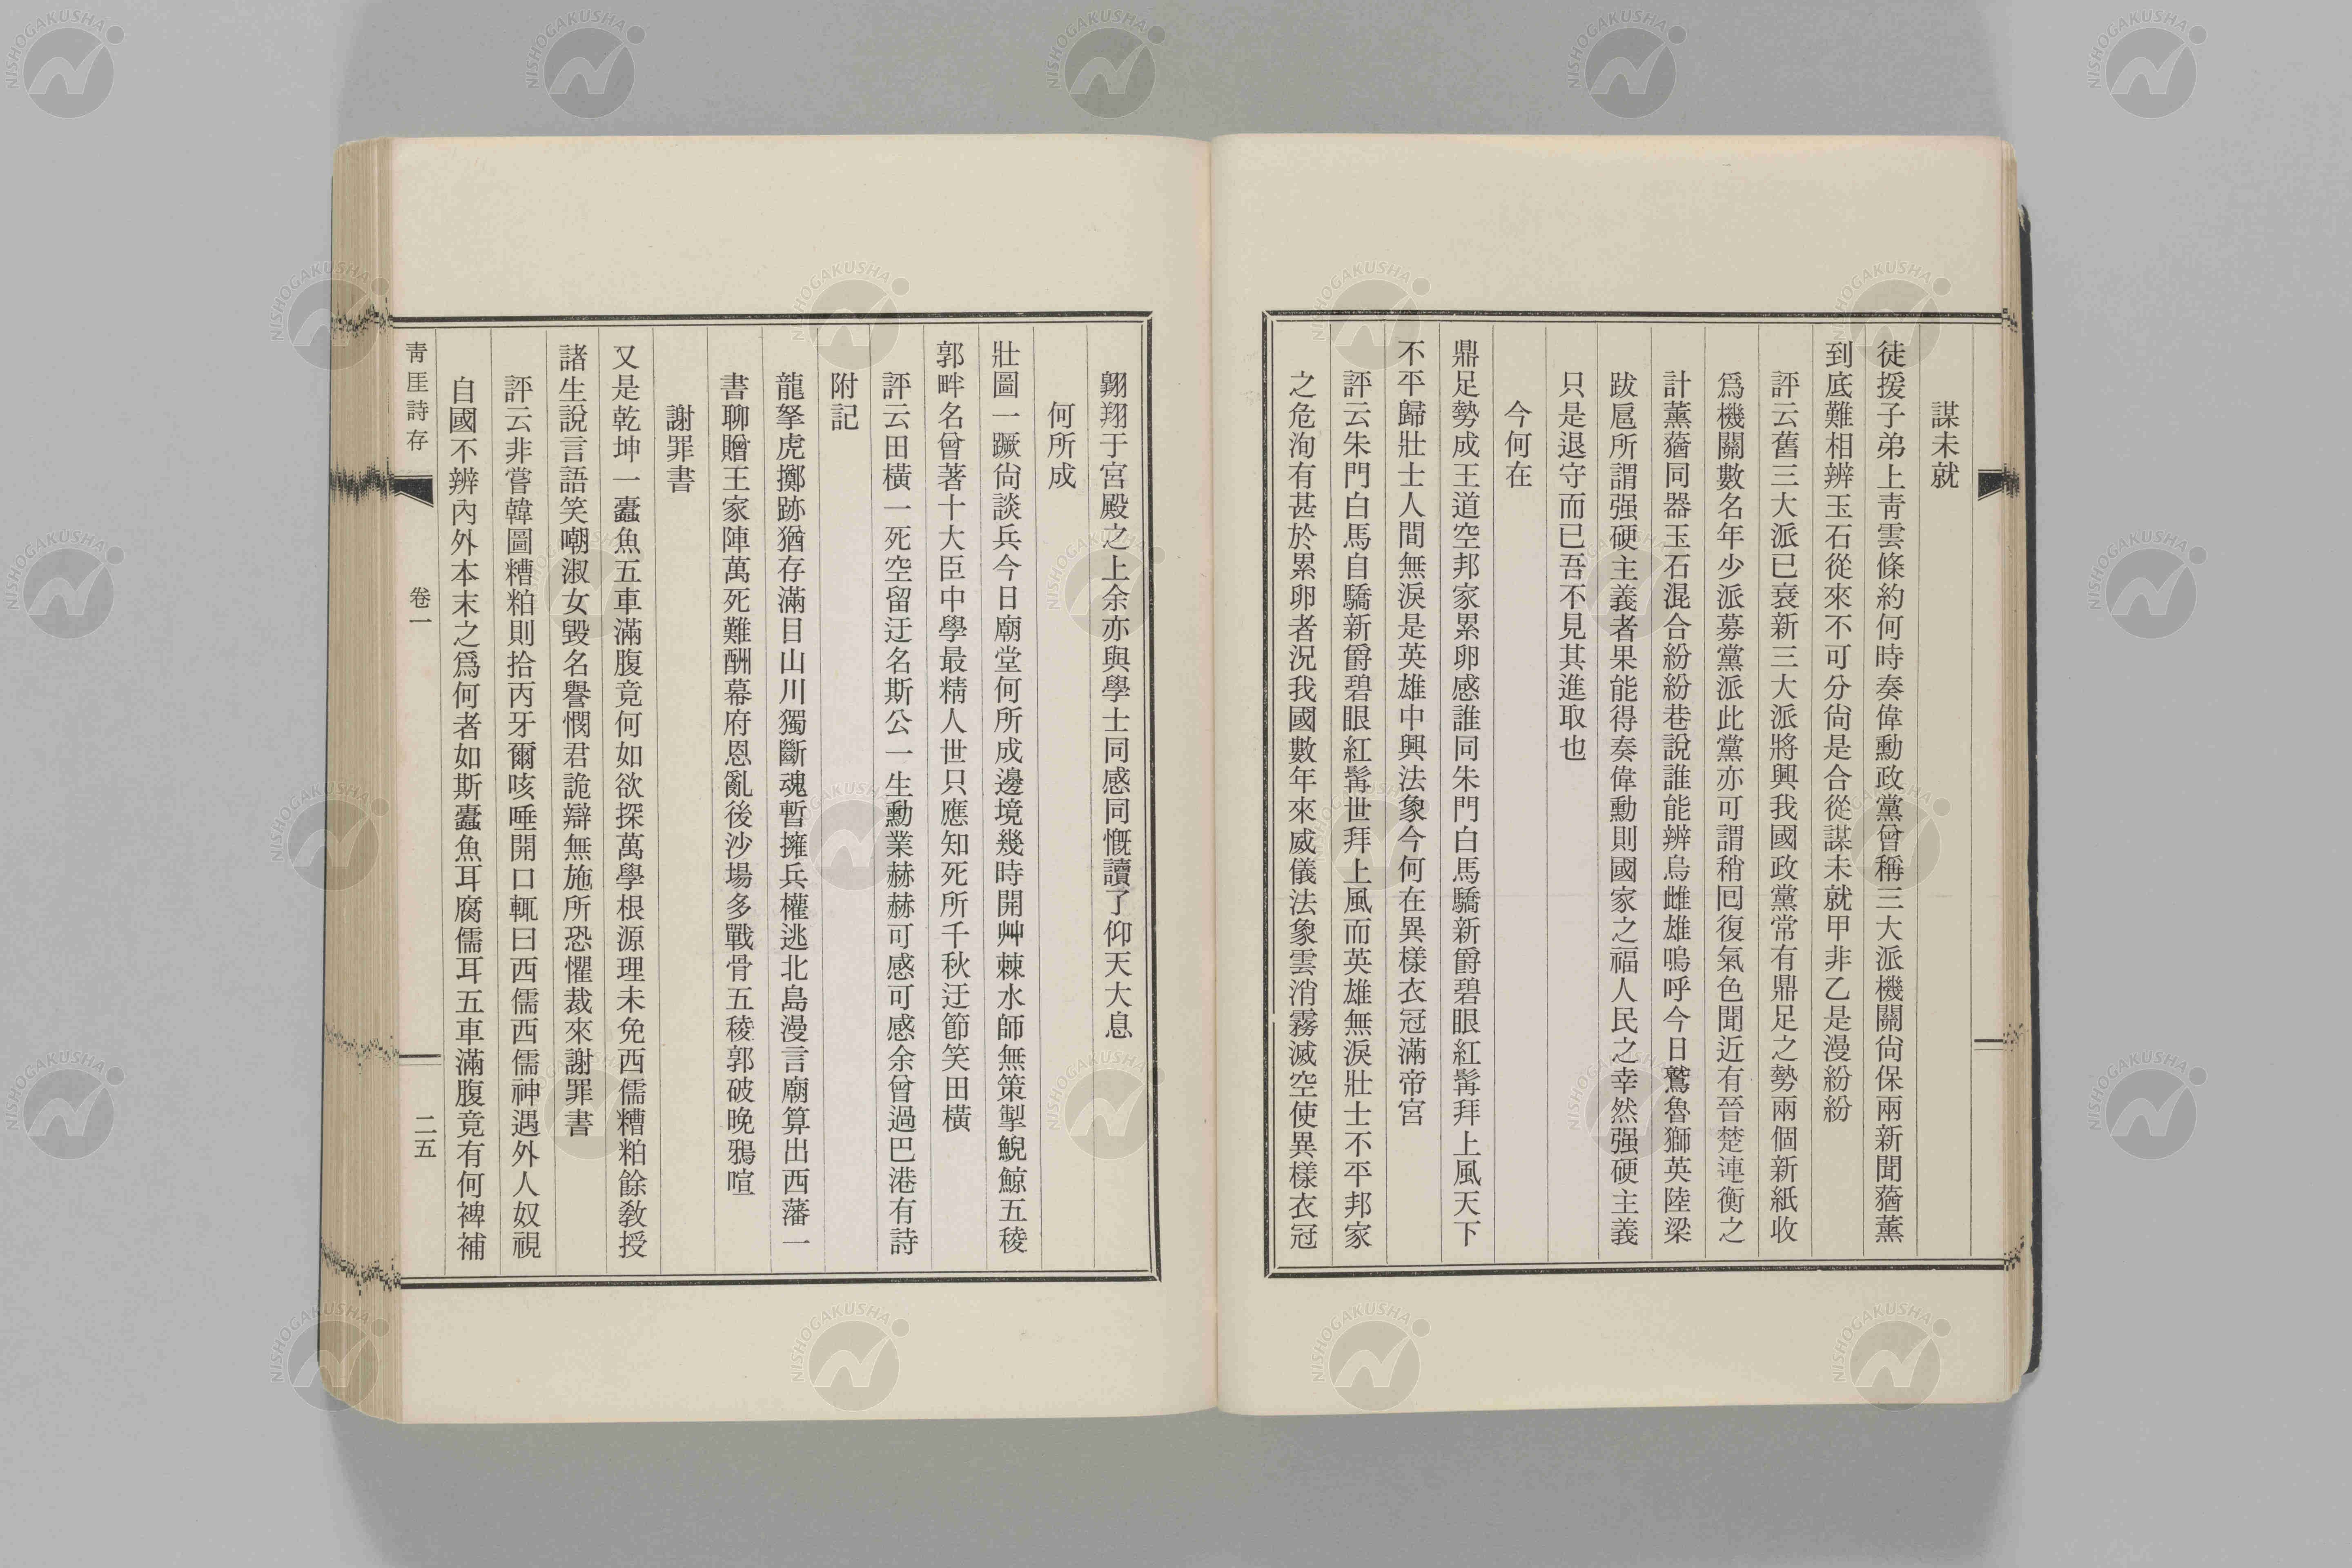 謀未就
徒援子弟上靑雲條約何時奏偉勳政黨曾稱三大派機關尙保兩新聞蕕薰
到底難相辨玉石從來不可分尙是合從謀未就甲非乙是漫紛紛
評云舊三大派已衰新三大派將興我國政黨常有鼎足之勢兩個新紙收
爲機關數名年少派募黨派此黨亦可謂稍囘復氣色聞近有晉楚連衡之
計薰蕕同器玉石混合紛紛巷說誰能辨烏雌雄嗚呼今日鷲魯獅英陸梁
跋扈所謂强硬主義者果能得奏偉勳則國家之福人民之幸然强硬主義
只是退守而已吾不見其進取也
今何在
鼎足勢成王道空邦家累卵感誰同朱門白馬驕新爵碧眼紅髯拜上風天下
不平歸壯士人間無淚是英雄中興法象今何在異樣衣冠滿帝宮
評云朱門白馬自驕新爵碧眼紅髯世拜上風而英雄無淚壯士不平邦家
之危洵有甚於累卵者況我國數年來威儀法象雲消霧滅空使異樣衣冠
翺翔于宮殿之上余亦與學士同感同慨讀了仰天大息
何所成
壯圖一蹶尙談兵今日廟堂何所成邊境幾時開艸棘水師無策掣鯢鯨五稜
郭畔名曾著十大臣中學最精人世只應知死所千秋迂節笑田橫
評云田橫一死空留迂名斯公一生勳業赫赫可感可感余曾過巴港有詩
附記
龍拏虎擲跡猶存滿目山川獨斷魂暫擁兵權逃北島漫言廟算出西藩一
書聊贈王家陣萬死難酬幕府恩亂後沙場多戰骨五稜郭破晩鴉喧
謝罪書
又是乾坤一蠹魚五車滿腹竟何如欲探萬學根源理未免西儒糟粕餘敎授
諸生說言語笑嘲淑女毀名譽憫君詭辯無施所恐懼裁來謝罪書
評云非嘗韓圖糟粕則拾丙牙爾咳唾開口輒曰西儒西儒神遇外人奴視
自國不辨內外本末之爲何者如斯蠹魚耳腐儒耳五車滿腹竟有何裨補
靑厓詩存
卷一
二五
NISHOGAKUSHA